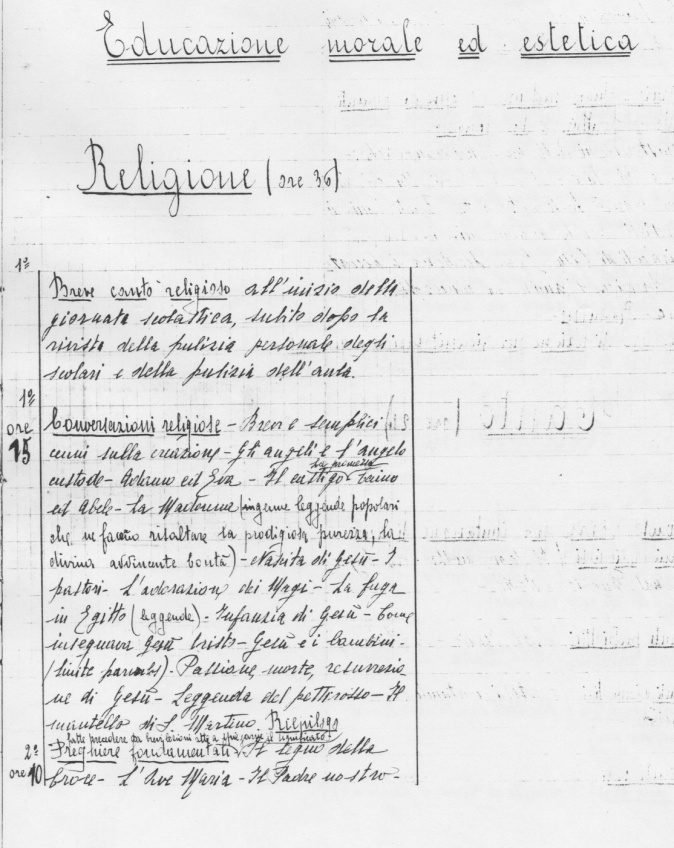 Educazione morale ed estetica
Religione (ore 36)
1ª
Breve canto religioso all'inizio della
giornata scolastica, subito dopo la
rivista della pulizia personale degli
scolari e della pulizia dell'aula.
1ª
ore
15
Conversazioni religiose - Brevi e semplici
cenni sulla creazione - Gli angeli e l'angelo
la promessa
custode - Adamo ed Eva - Il castigo Caino
ed Abele - La Madonna (ingenue leggende popolari
che ne fanno risaltare la prodigiosa purezza, la
divina avvincente bontà) - Nascita di Gesù - I
pastori - L'adorazione dei Magi - La fuga
in Egitto (leggende) - Infanzia di Gesù - Come
insegnava Gesù Cristo - Gesù e i bambini -
(Sinite parvulos) - Passione, morte, resurrezio-
ne di Gesù - Leggenda del pettirosso - Il
mantello di S. Martino. Riepilogo
fatte precedere da a spiegarne il significato
2ª
ore 10
Preghiere fondamentali Il segno della
Croce - L'Ave Maria - Il Padre nostro -